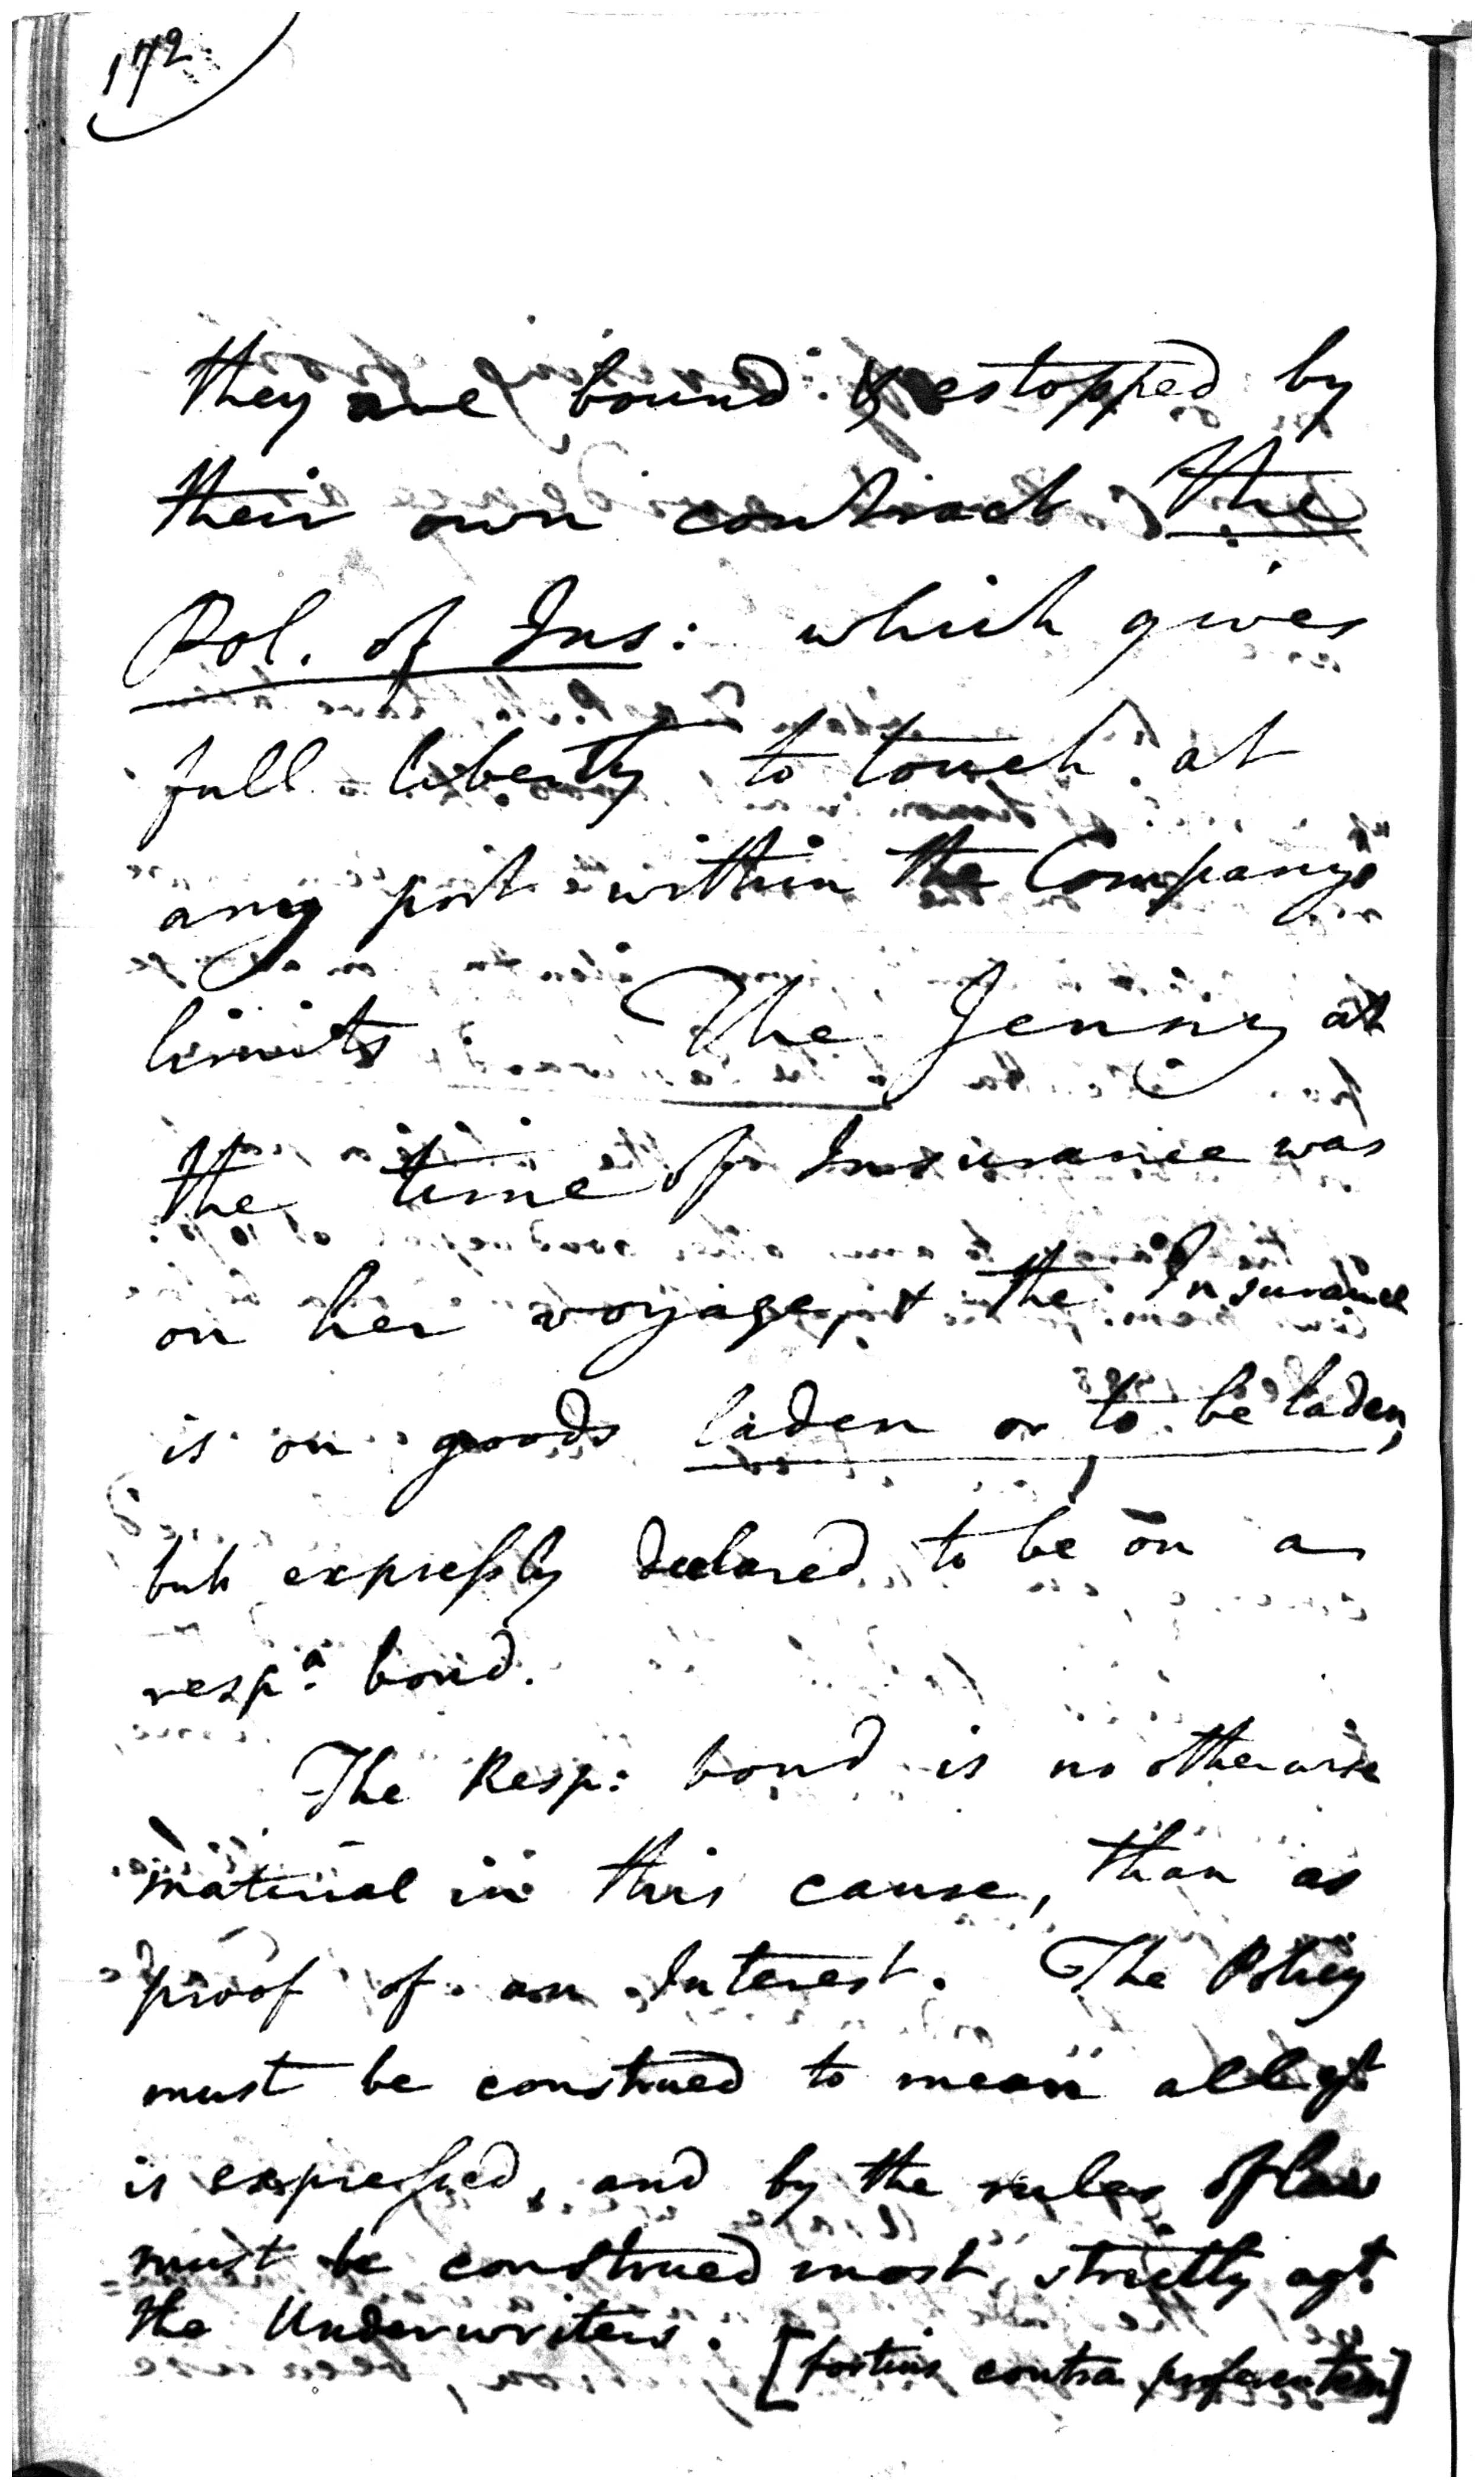 172
they are bound & estopped by
their own contract The
Pol. of Ins: which gives
full liberty to touch at
any port within the Company's
limits The Jenny at
the time of Insurance was
on her voyage, & the Insurance
is on goods laden or to be laden,
but expressly declared to be on a
respa. bond.
The Resp: bond is no otherwise
material in this cause, than as
proof of an Interest. The Policy
must be construed to mean all yt
is expressed, and by the rules of law
must be construed most strictly agt.
the Underwriters.
[fortius contra proferentem]